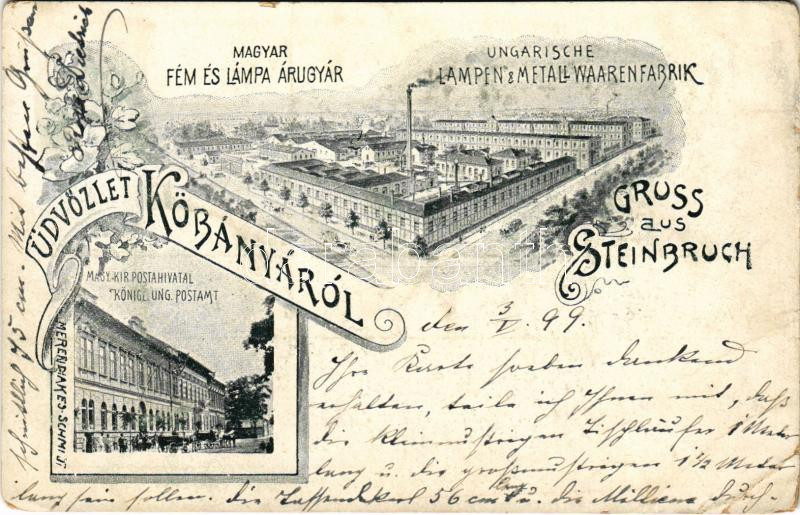 MAGYAR
FÉM ÉS LÁMPA ÁRUGYÁR
UNGARISCHE
LAMPEN & METALL WAARENFABRIK
ÜDVÖZLET
KŐBÁNYÁRÓL
GRUSS
aus
STEINBRUCH
MAGY. KIR. POSTAHIVATAL
KÖNIGL. UNG. POSTAMT
den 3/V. 99.
Ihre Karte soeben dankend
erhalten, teile ich Ihnen mit, daß
die kleinmustrigen Tischläufer 1 Meter
lang u. die großmustrigen 1 1/2 Meter
lang sein sollen. die 56 cm u. die
75 cm. Mit besten Grüßen